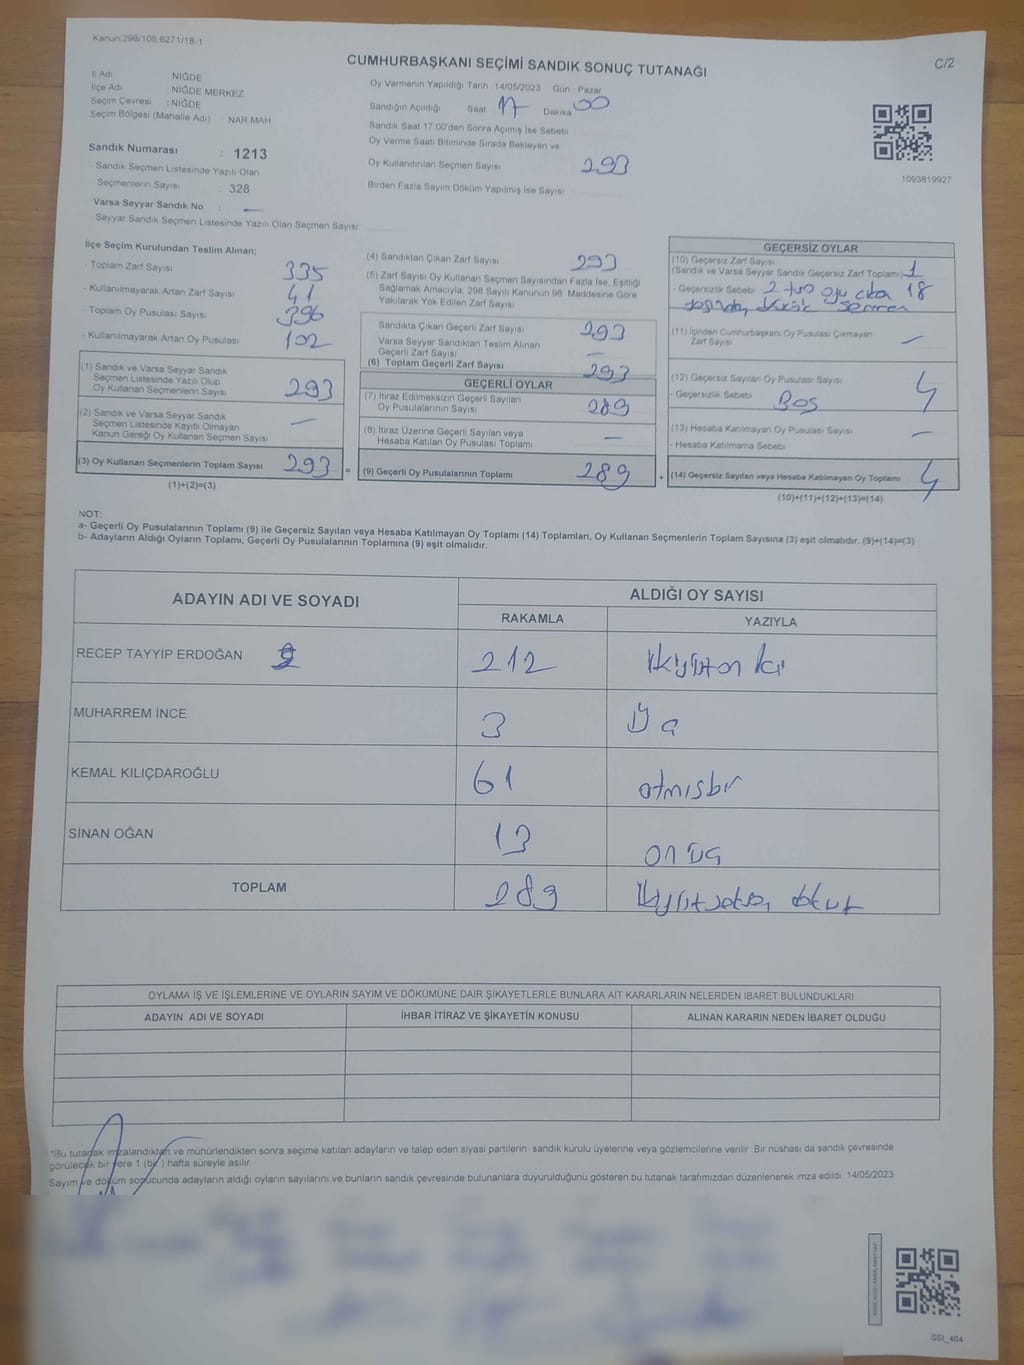 Kanun:298/105,6271/18-1
C/2
CUMHURBAŞKANI SEÇİMİ SANDIK SONUÇ TUTANAĞI
İl Adı NİĞDE
İlçe Adı : NİĞDE MERKEZ
Seçim Çevresi : NİĞDE
Seçim Bölgesi (Mahalle Adı) NAR MAH.
Sandık Numarası : 1213
Sandık Seçmen Listesinde Yazılı Olan
Seçmenlerin Sayısı : 328
Varsa Seyyar Sandık No : —
Seyyar Sandık Seçmen Listesinde Yazılı Olan Seçmen Sayısı:
Oy Vermenin Yapıldığı Tarih 14/05/2023 Gün : Pazar
Sandığın Açıldığı Saat 17 Dakika 00
Sandık Saat 17:00'den Sonra Açımış İse Sebebi
Oy Verme Saati Bitiminde Sırada Bekleyen ve
Oy Kullandırılan Seçmen Sayısı 293
Birden Fazla Sayım Döküm Yapılmış İse Sayısı :
1093819927
İlçe Seçim Kurulundan Teslim Alınan;
- Toplam Zarf Sayısı 335
- Kullanılmayarak Artan Zarf Sayısı 41
- Toplam Oy Pusulası Sayısı 396
- Kullanılmayarak Artan Oy Pusulası 102
(1) Sandık ve Varsa Seyyar Sandık
Seçmen Listesinde Yazılı Olup
Oy Kullanan Seçmenlerin Sayısı 293
(2) Sandık ve Varsa Seyyar Sandık
Seçmen Listesinde Kayıtlı Olmayan
Kanun Gereği Oy Kullanan Seçmen Sayısı —
(3) Oy Kullanan Seçmenlerin Toplam Sayısı 293 =
(1)+(2)=(3)
(4) Sandıktan Çıkan Zarf Sayısı 293
(5) Zarf Sayısı Oy Kullanan Seçmen Sayısından Fazla İse, Eşitliği
Sağlamak Amacıyla, 298 Sayılı Kanunun 98. Maddesine Göre
Yakılarak Yok Edilen Zarf Sayısı
Sandıkta Çıkan Geçerli Zarf Sayısı 293
Varsa Seyyar Sandıktan Teslim Alınan
Geçerli Zarf Sayısı —
(6) Toplam Geçerli Zarf Sayısı 293
GEÇERLİ OYLAR
(7) İtiraz Edilmeksizin Geçerli Sayılan
Oy Pusulalarının Sayısı 289
(8) İtiraz Üzerine Geçerli Sayılan veya
Hesaba Katılan Oy Pusulası Toplamı —
(9) Geçerli Oy Pusulalarının Toplamı 289 +
GEÇERSİZ OYLAR
(10) Geçersiz Zarf Sayısı
(Sandık ve Varsa Seyyar Sandık Geçersiz Zarf Toplamı) 1
- Geçersizlik Sebebi 2 18
(11) İçinden Cumhurbaşkanı Oy Pusulası Çıkmayan
Zarf Sayısı —
(12) Geçersiz Sayılan Oy Pusulası Sayısı 4
- Geçersizlik Sebebi Boş
(13) Hesaba Katılmayan Oy Pusulası Sayısı —
- Hesaba Katılmama Sebebi
(14) Geçersiz Sayılan veya Hesaba Katılmayan Oy Toplamı 4
(10)+(11)+(12)+(13)=(14)
NOT:
a- Geçerli Oy Pusulalarının Toplamı (9) ile Geçersiz Sayılan veya Hesaba Katılmayan Oy Toplamı (14) Toplamları, Oy Kullanan Seçmenlerin Toplam Sayısına (3) eşit olmalıdır. (9)+(14)=(3)
b- Adayların Aldığı Oyların Toplamı, Geçerli Oy Pusulalarının Toplamına (9) eşit olmalıdır.
ADAYIN ADI VE SOYADI ALDIĞI OY SAYISI
RAKAMLA YAZIYLA
RECEP TAYYİP ERDOĞAN 212 ikiyüzon iki
MUHARREM İNCE 3 Üç
KEMAL KILIÇDAROĞLU 61 atmışbir
SİNAN OĞAN 13 on üç
TOPLAM 289 ikiyüzseksen dokuz
OYLAMA İŞ VE İŞLEMLERİNE VE OYLARIN SAYIM VE DÖKÜMÜNE DAİR ŞİKAYETLERLE BUNLARA AİT KARARLARIN NELERDEN İBARET BULUNDUKLARI
ADAYIN ADI VE SOYADI İHBAR İTİRAZ VE ŞİKAYETİN KONUSU ALINAN KARARIN NEDEN İBARET OLDUĞU
*Bu tutanak imzalandıktan ve mühürlendikten sonra seçime katılan adayların ve talep eden siyasi partilerin sandık kurulu üyelerine veya gözlemcilerine verilir. Bir nüshası da sandık çevresinde
görülecek bir yere 1 (bir) hafta süreyle asılır.
Sayım ve döküm sonucunda adayların aldığı oyların sayılarını ve bunların sandık çevresinde bulunanlara duyurulduğunu gösteren bu tutanak tarafımızdan düzenlenerek imza edildi. 14/05/2023
SSI_404